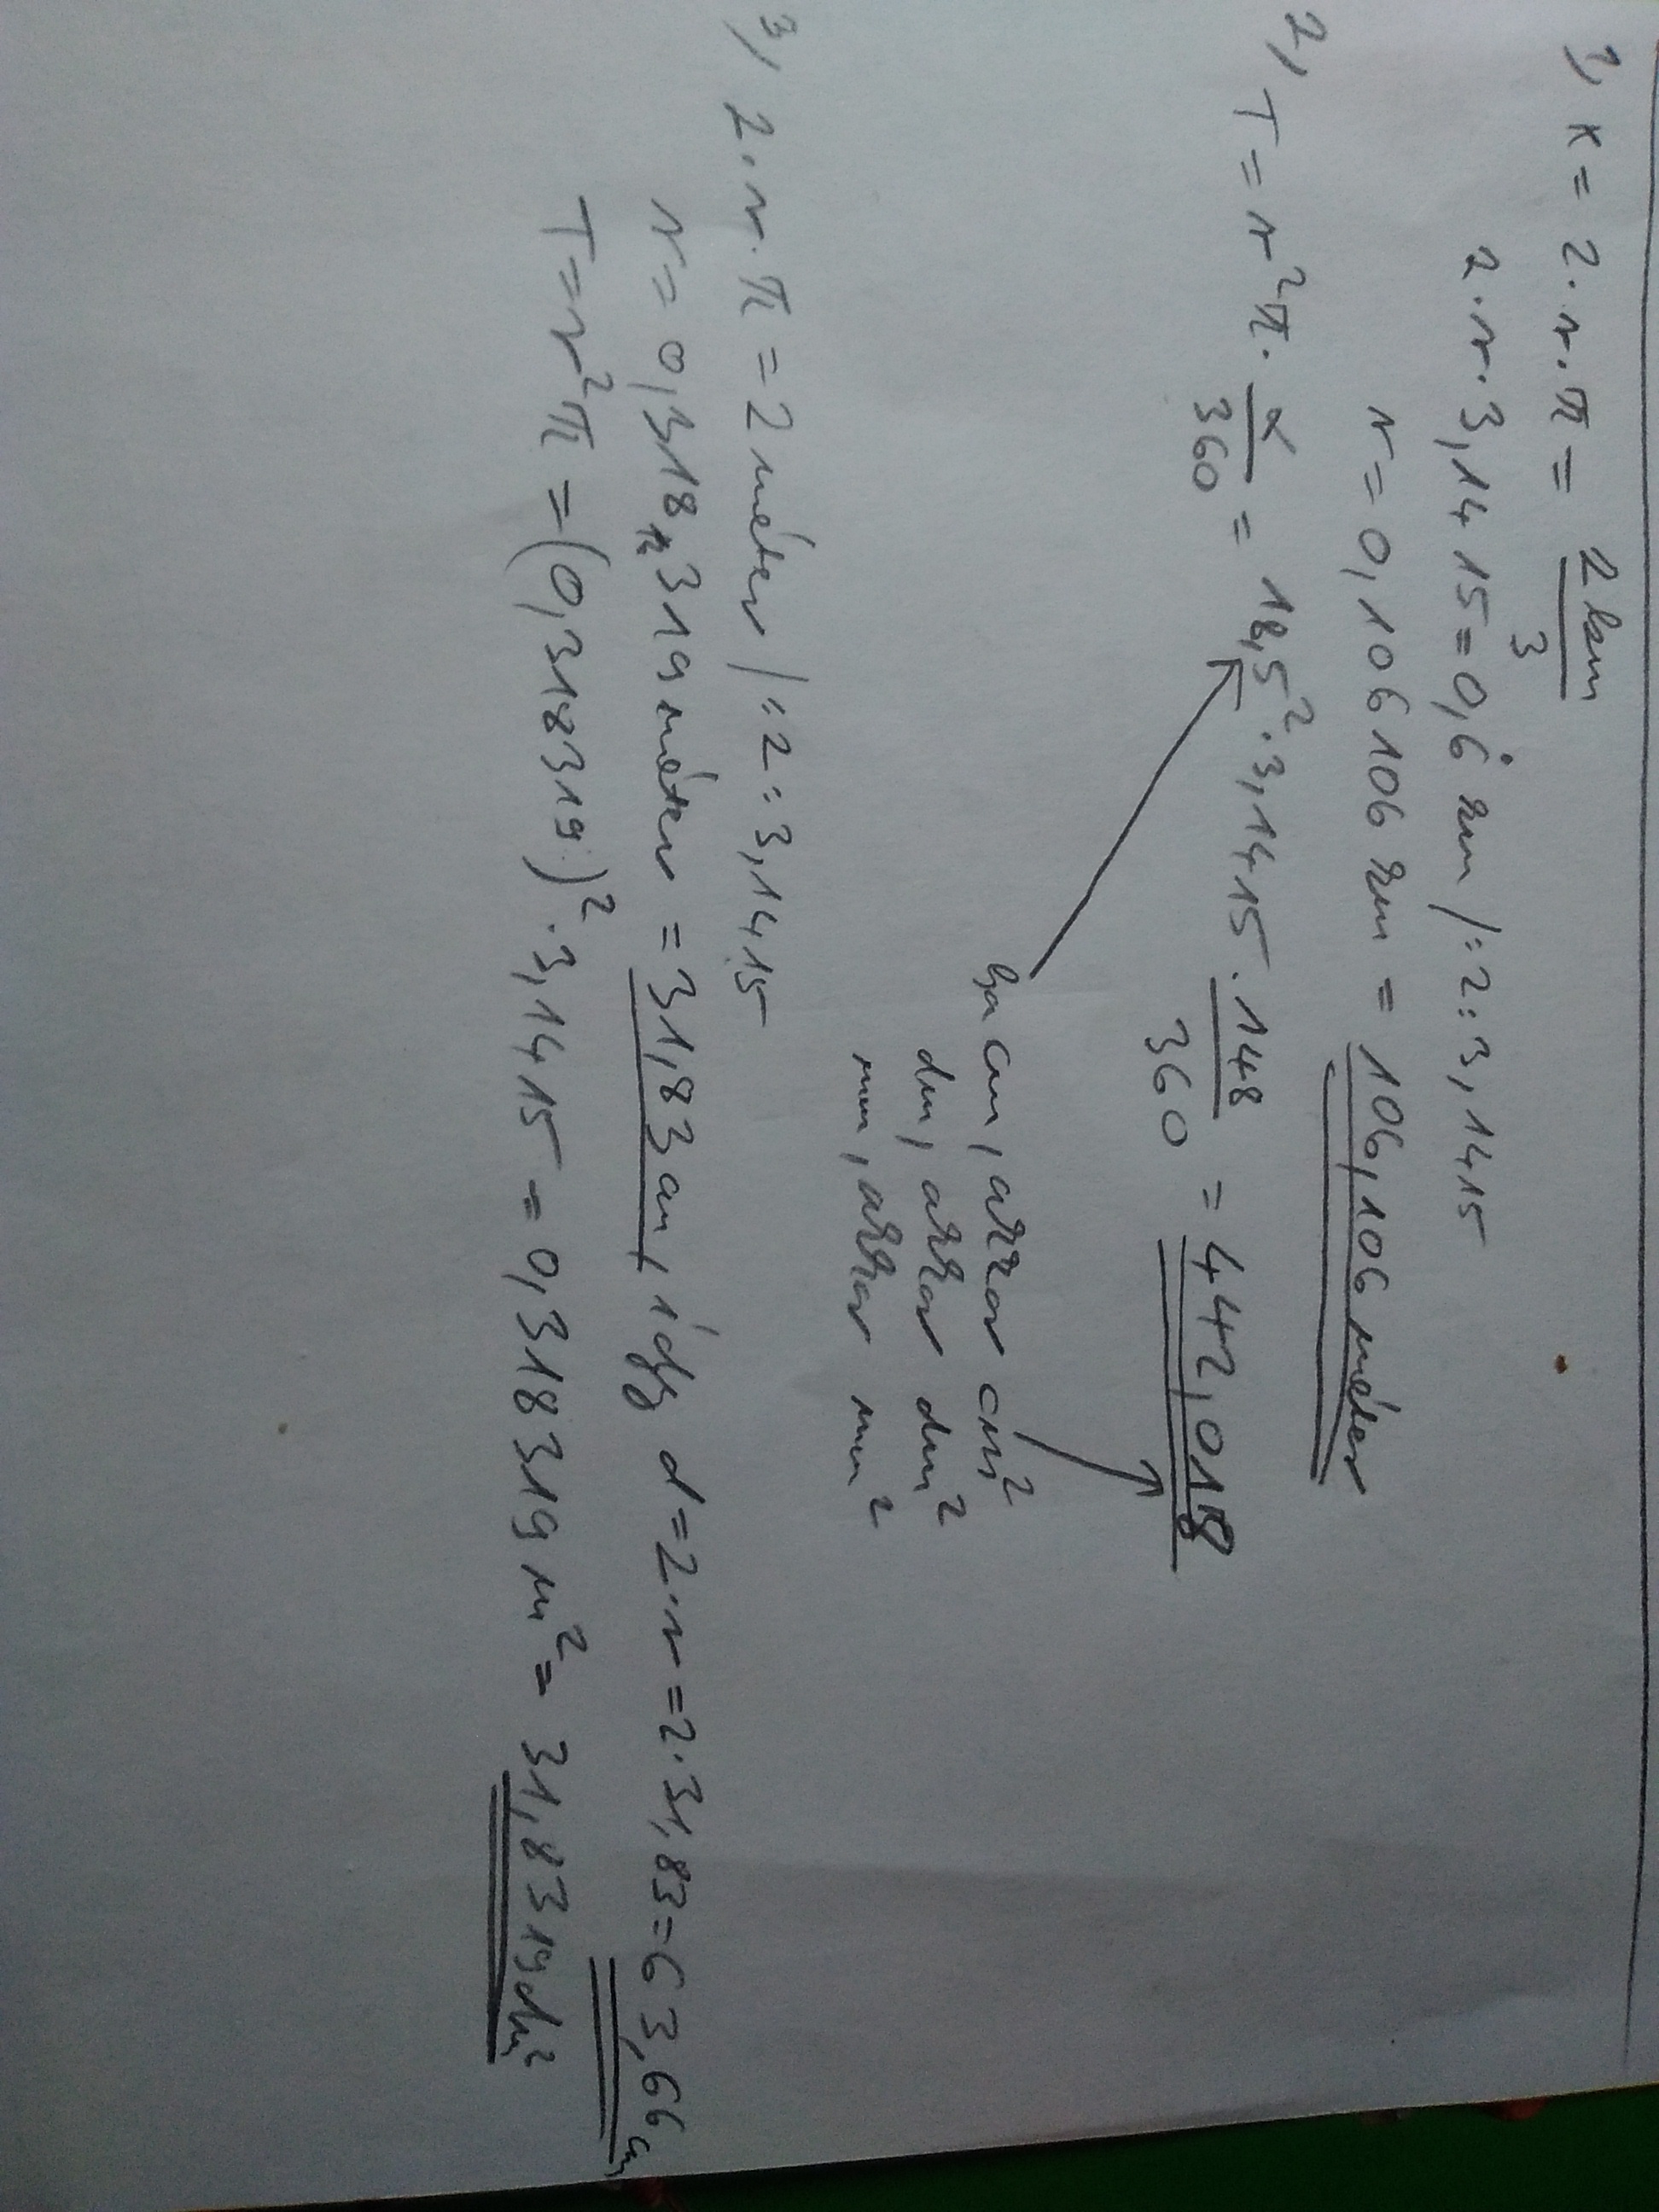 1, K = 2·r·π = 2km/3
2·r·3,1415 = 0,6̇ km /:2:3,1415
r = 0,106106 km = 106,106 méter
2, T = r²π · α/360 = 18,5² · 3,1415 · 148/360 = 442,018
ha cm, akkor cm²
dm, akkor dm²
mm, akkor mm²
3, 2·r·π = 2 méter /:2:3,1415
r = 0,318319 méter = 31,83 cm, így d = 2·r = 2·31,83 = 63,66 cm
T = r²π = (0,318319)² · 3,1415 = 0,318319 m² = 31,8319 dm²